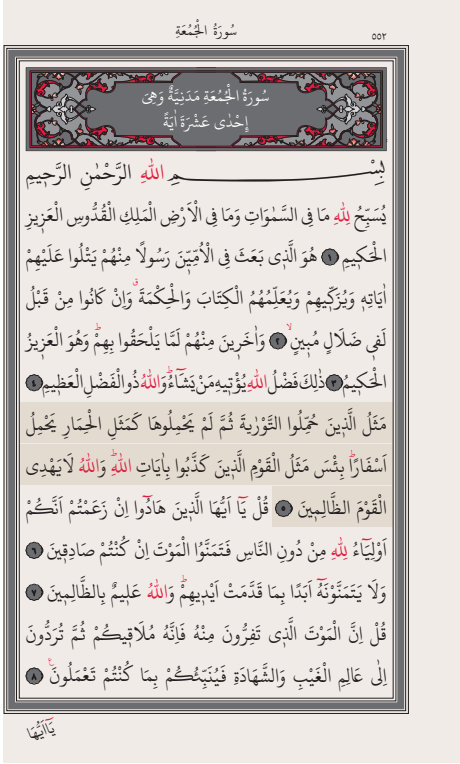 سُورَةُ الْجُمُعَةِ
٥٥٢
سُورَةُ الْجُمُعَةِ مَدَنِيَّةٌ وَهِىَ
اِحْدٰى عَشْرَةَ اٰيَةً
بِسْمِ اللّٰهِ الرَّحْمٰنِ الرَّحٖيمِ
يُسَبِّحُ لِلّٰهِ مَا فِى السَّمٰوَاتِ وَمَا فِى الْاَرْضِ الْمَلِكِ الْقُدُّوسِ الْعَزٖيزِ
الْحَكٖيمِ ﴿١﴾ هُوَ الَّذٖى بَعَثَ فِى الْاُمِّيّٖنَ رَسُولًا مِنْهُمْ يَتْلُوا عَلَيْهِمْ
اٰيَاتِهٖ وَيُزَكّٖيهِمْ وَيُعَلِّمُهُمُ الْكِتَابَ وَالْحِكْمَةَۗ وَاِنْ كَانُوا مِنْ قَبْلُ
لَفٖى ضَلَالٍ مُبٖينٍۙ ﴿٢﴾ وَاٰخَرٖينَ مِنْهُمْ لَمَّا يَلْحَقُوا بِهِمْؕ وَهُوَ الْعَزٖيزُ
الْحَكٖيمُ ﴿٣﴾ ذٰلِكَ فَضْلُ اللّٰهِ يُؤْتٖيهِ مَنْ يَشَٓاءُؕ وَاللّٰهُ ذُو الْفَضْلِ الْعَظٖيمِ ﴿٤﴾
مَثَلُ الَّذٖينَ حُمِّلُوا التَّوْرٰيةَ ثُمَّ لَمْ يَحْمِلُوهَا كَمَثَلِ الْحِمَارِ يَحْمِلُ
اَسْفَارًاؕ بِئْسَ مَثَلُ الْقَوْمِ الَّذٖينَ كَذَّبُوا بِاٰيَاتِ اللّٰهِؕ وَاللّٰهُ لَا يَهْدِى
الْقَوْمَ الظَّالِمٖينَ ﴿٥﴾ قُلْ يَٓا اَيُّهَا الَّذٖينَ هَادُٓوا اِنْ زَعَمْتُمْ اَنَّكُمْ
اَوْلِيَٓاءُ لِلّٰهِ مِنْ دُونِ النَّاسِ فَتَمَنَّوُا الْمَوْتَ اِنْ كُنْتُمْ صَادِقٖينَ ﴿٦﴾
وَلَا يَتَمَنَّوْنَهُٓ اَبَدًا بِمَا قَدَّمَتْ اَيْدٖيهِمْؕ وَاللّٰهُ عَلٖيمٌ بِالظَّالِمٖينَ ﴿٧﴾
قُلْ اِنَّ الْمَوْتَ الَّذٖى تَفِرُّونَ مِنْهُ فَاِنَّهُ مُلَاقٖيكُمْ ثُمَّ تُرَدُّونَ
اِلٰى عَالِمِ الْغَيْبِ وَالشَّهَادَةِ فَيُنَبِّئُكُمْ بِمَا كُنْتُمْ تَعْمَلُونَࣖ ﴿٨﴾
يَٓا اَيُّهَا